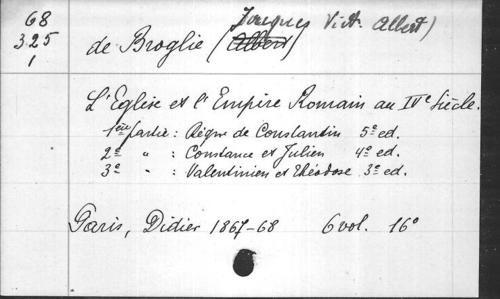 68
325
1
Jacques Vict. Albert)
de Broglie (Albert)
L'Eglise et l'Empire Romain au IVe Siècle.
1ère partie : Règne de Constantin 5e ed.
2e " : Constance et Julien 4e ed.
3e " : Valentinien et Théodose 3e ed.
Paris, Didier 1867-68 6 vol. 16°